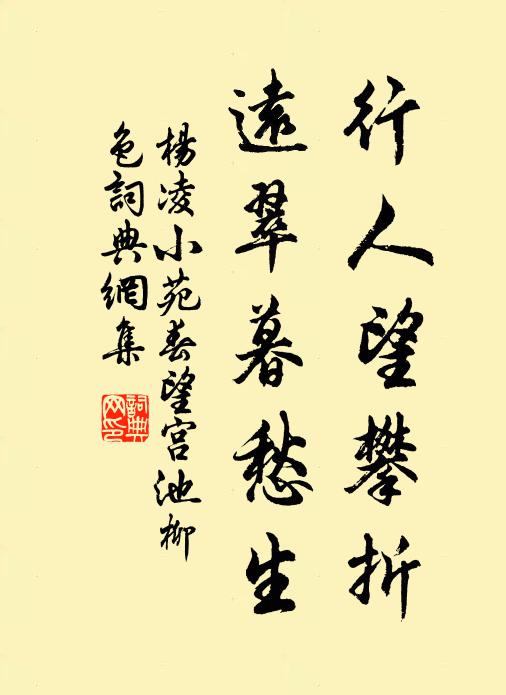 行人望攀折
遠翠暮愁生
楊凌小苑春望宮池柳
色詞典網集
詞典
网印